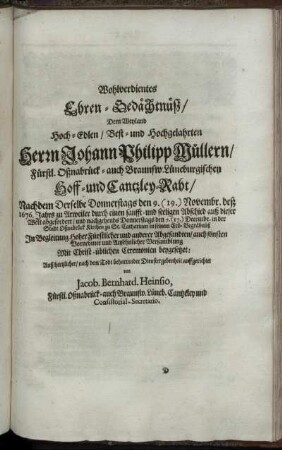 Wohlverdientes
Ehren-Gedächtnüß/
Dem Weyland
Hoch-Edlen/ Vest- und Hochgelahrten
Herrn Johann Philipp Müllern/
Fürstl. Oßnabrück- auch Braunschw. Lüneburgischen
Hoff- und Cantzley-Raht/
Nachdem Derselbe Donnerstags den 9. (19.) Novembr. deß
1676. Jahrs zu Arweiler durch einen sanfft- und seeligen Abschied auß dieser
Welt abgefordert/ und nachgehends Donnerstags den 7. (17.) Decembr. in der
Stadt Oßnabrück Kirchen zu St. Catharinen in seinem Erb-Begräbniß
In Begleitung Hoher Fürstlicher und anderer Abgesandten/ auch sonsten
Vornehmer und Ansehnlicher Versamblung
Mit Christ-üblichen Ceremonien beygesetzet:
Auß hertzlicher/ nach dem Tode lebender Dienstergebenheit auffgerichtet
von
Jacob. Bernhard. Heinsio,
Fürstl. Oßnabrück- auch Braunschw. Lüneb. Cantzley und
Consistorial-Secretario.
D